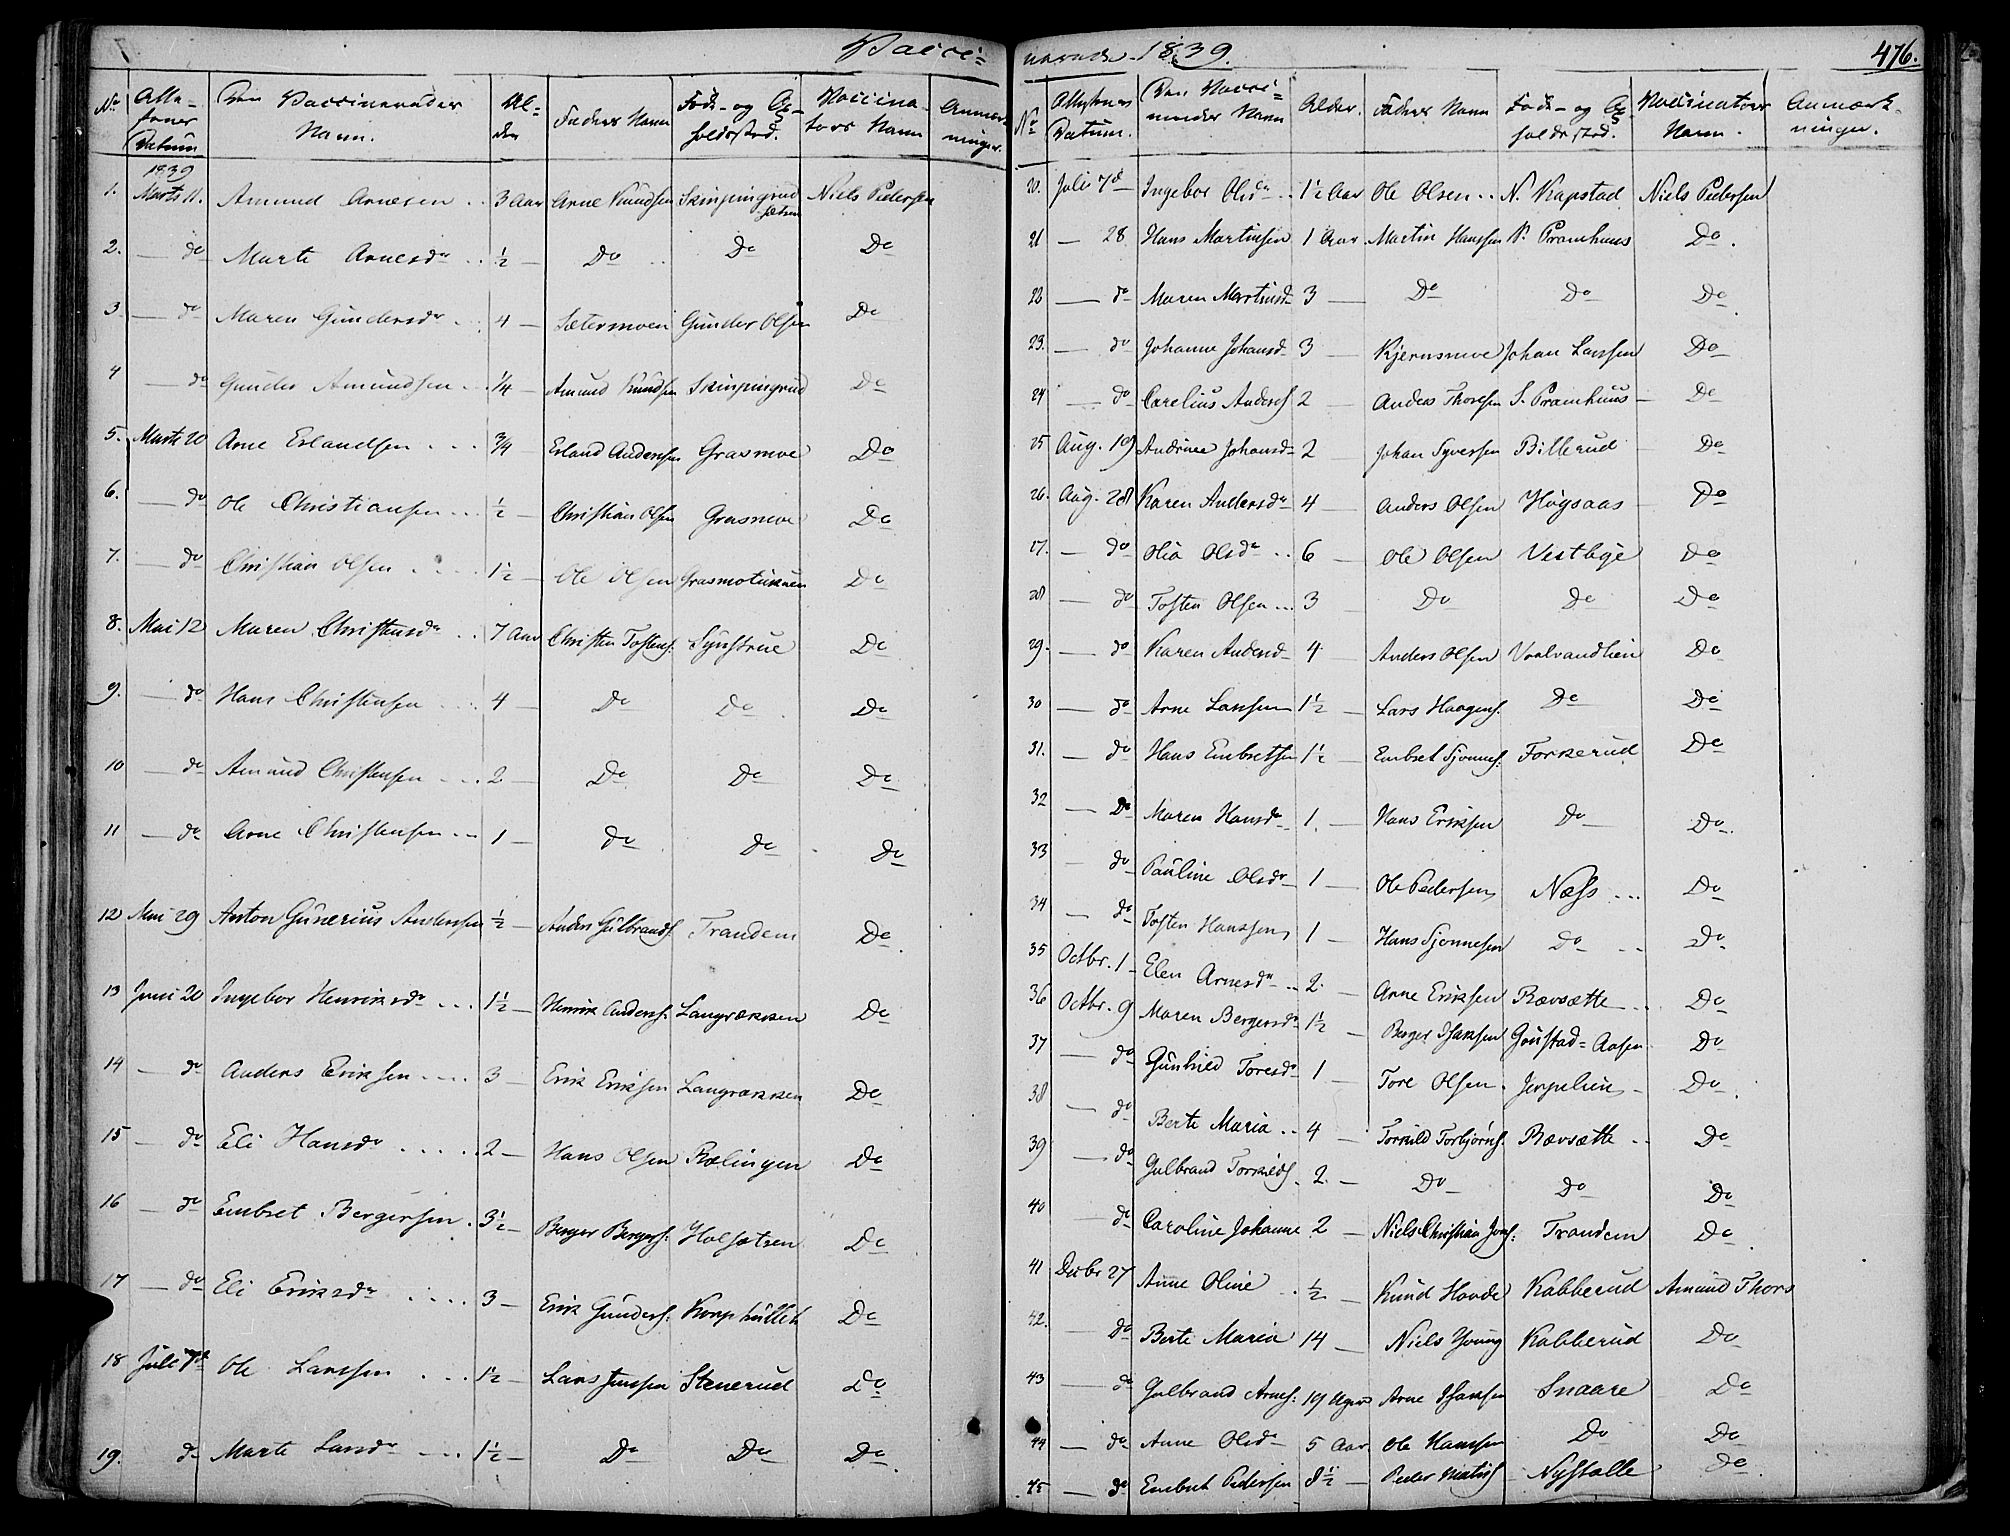 Vacci=
No Atte- stens Datum Den Vaccineredes Navn. Al- der Faders Navn Føde- og Op- holdssted. Vaccina- tors Navn Anmærk- ninger.
1839
1. Marts 11. Amund Arnesen .. 3 Aar Arne Knudsen Skinpingrud sætren Niels Pedersen
2. — do Marte Arnesdr .. ½ — Do .. Do Do
3 — do Maren Gundersdr .. 4 — Sætermoen Gunder Olsen Do
4 — do Gunder Amundsen .. ¼ Amund Knudsen Skinpingrud Do
5. Marts 20 Arne Erlandsen ... ¾ Erland Andersen Grasmoe Do
6. — do Ole Christiansen ... ½ — Christian Olsen Grasmoe Do
7. — do Christian Olsen .... 1½ — Ole Olsen Grasmotuknen Do
8. Mai 12 Maren Christensdr .. 7 Aar Christen Tostens. Synstrue Do
9. — do Hans Christensen ... 4 — Do Do Do
10 — do Amund Christensen ... 2 — Do Do Do
11 — do Arne Christensen ... 1 — Do Do Do
12 Mai 29 Anton Gunerius Andersen ½ — Anders Gulbrands. Trandem Do
13 Juni 20 Ingebor Henriksdr ... 1½ — Henrik Anders. Langrækken Do
14 — do Anders Eriksen .... 3 — Erik Eriksen Langrækken Do
15 — do Eli Hansdr ..... 2 — Hans Olsen Rælingen Do
16 — do Embret Bergersen . 3½ — Berger Bergers. Holsætren Do
17 — do Eli Eriksdr .... 3 — Erik Gunders. Korphullet Do
18 Juli 7d Ole Larssen ... 1½ — Lars Jenssen Stenerud Do
19. do Marte Larsdr ... 1½ — Do Do Do
nerede 1839. 476.
No Attestens Datum. Den Vacci= neredes Navn Alder. Faders Navn Føde- og Op- holdssted. Vaccinators Navn. Anmærk- ninger.
20. Juli 7d — Ingebor Olsdr .. 1½ Aar Ole Olsen .. N. Kapstad Niels Pedersen
21 — 28 Hans Martinsen 1 Aar Martin Hanssen N. Pramhuus Do.
22 — do Maren Martinsd 3 — Do Do Do
23. — do Johanne Johansd 3 — Kjernsmoe Johan Larssen Do
24 — do Carelius Anders. 2 — Anders Thoresen S. Pramhuus — Do
25 Aug. 19 Andrine Johansd 2 — Johan Syversen Billerud Do
26. Aug. 28 Karen Andersdr 4 — Anders Olsen Høgsaas Do
27. — do Olia Olsdr .. 6 — Ole Olsen Vestbye Do
28 — do Tosten Olsen ... 3 — Do Do Do
29. — do Karen Andersd 4 — Anders Olsen Vaalvandlien Do
30 — do Arne Larssen 1½ — Lars Haagens. Do Do
31. — do Hans Embretsen 1½ — Embret Sjonnes. Torkerud Do
32 — Do Maren Hansdr 1. — Hans Eriksen Do Do
33 — do Pauline Olsdr 1 — Ole Pedersen Næss ... Do
34 — do Tosten Hanssen 1 — Hans Sjonnesen Do .. Do
35 Octbr. 1 Elen Arnesdr .. 2. — Arne Eriksen Rævsætte .. Do
36 Octbr. 9 Maren Bergersdr 1½ — Berger Hanssen Goustad=Aasen Do
37 — do Gunhild Toresdr 1 — Tore Olsen . Jerpelien Do
38 — do Berte Maria .. 4 — Torkild Torbjørns. Rævsætte .. Do
39 — do Gulbrand Torkilds. 2. — Do Do Do
40 — do Caroline Johanne 2 — Niels Christian Jons. Trandem Do
41 Decbr 27 Anne Oline . ½ — Knud Hovde Kabberud Amund Thors
42. — do Berte Maria 14 — Niels Young Kabberud Do
43 — do Gulbrand Arnes. 19 Uger Arne Hanssen Snaare Do
44 — do Anne Olsdr 5 Aar Ole Hanssen Do Do
45 — do Embret Pedersen 8½ — Peder Nystølle Do